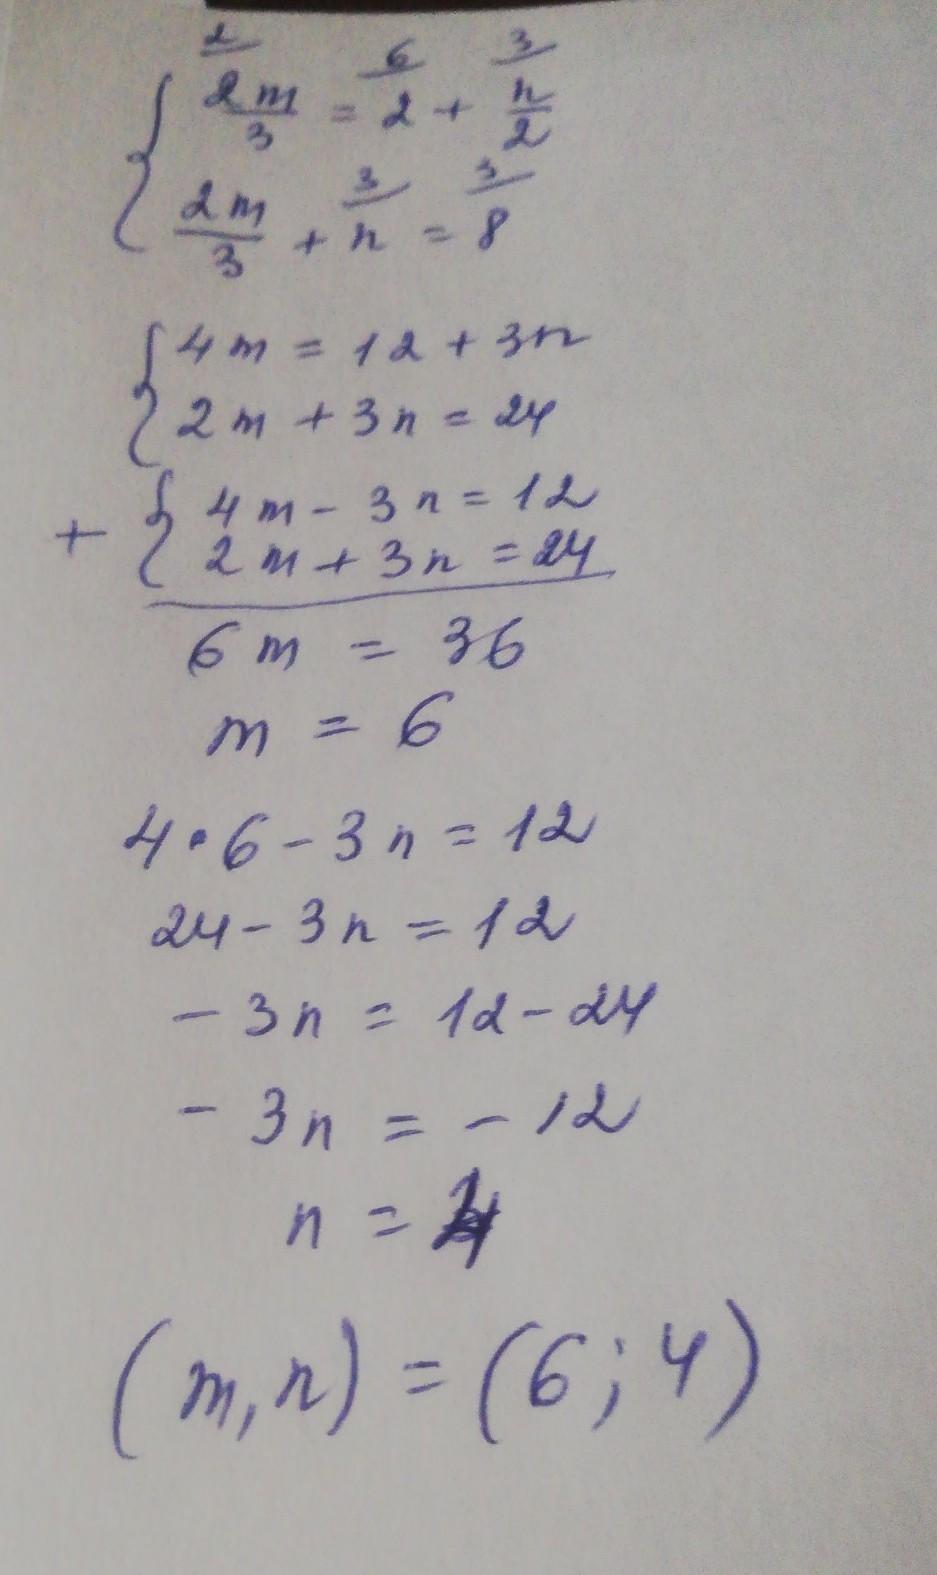 2/ 6/ 3/
{ 2m/3 = 2 + n/2
3/ 3/
{ 2m/3 + n = 8
{ 4m = 12 + 3n
{ 2m + 3n = 24
+ { 4m - 3n = 12
{ 2m + 3n = 24
6m = 36
m = 6
4 • 6 - 3n = 12
24 - 3n = 12
- 3n = 12 - 24
- 3n = - 12
n = 4
(m, n) = (6; 4)